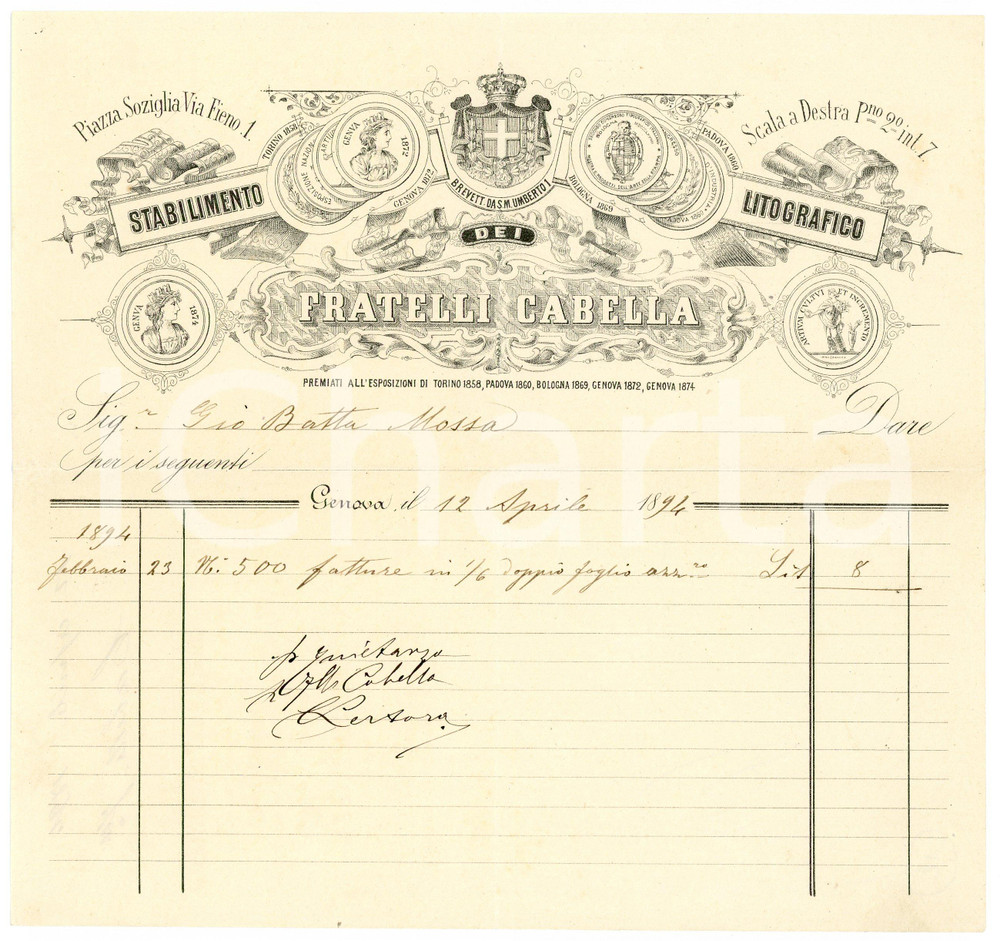 Piazza Soziglia Via Fieno 1
Scala a Destra Pno 2º int. 7
TORINO 1858
GENVA 1872
GENOVA 1872
BREVETT. DA S.M. UMBERTO I
BOLOGNA 1869
PADOVA 1860
STABILIMENTO
LITOGRAFICO
DEI
FRATELLI CABELLA
GENVA 1874
ARTIUM CVLTVI ET INCREMENTO
PREMIATI ALL'ESPOSIZIONI DI TORINO 1858, PADOVA 1860, BOLOGNA 1869, GENOVA 1872, GENOVA 1874
Sigr. Gio Batta Mossa Dare
per i seguenti
Genova, il 12 Aprile 1894
1894
Febbraio 23 N. 500 fatture in 1/6 doppio foglio azzro Lit 8
p quietanza
p Flli Cabella
iCharta